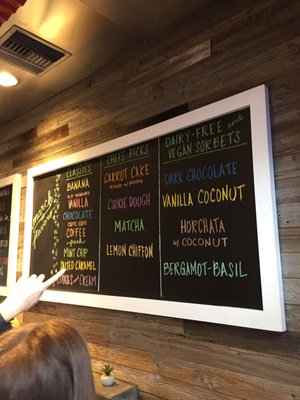 march flavors
CLASSICS
BANANA
VANILLA
CHOCOLATE
COFFEE
MINT CHIP
SALTED CARAMEL
COOKIES and CREAM
CHEFS PICKS
CARROT CAKE
COOKIE DOUGH
MATCHA
LEMON CHIFFON
DAIRY-FREE and
VEGAN SORBETS
DARK CHOCOLATE
VANILLA COCONUT
HORCHATA
w/ COCONUT
BERGAMOT-BASIL